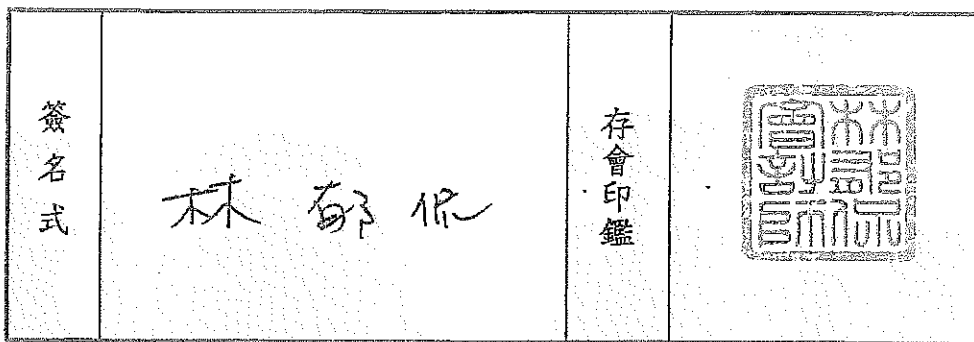 簽名式
林郁侃
存會印鑑